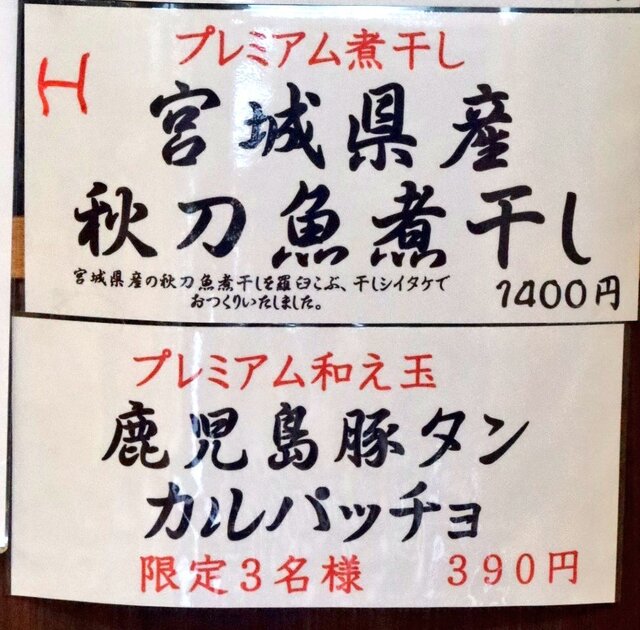 プレミアム煮干し
エ
宮城県産
秋刀魚煮干し
宮城県産の秋刀魚煮干しを羅臼こぶ、干しシイタケで
おつくりいたしました。
1400円
プレミアム和え玉
鹿児島豚タン
カルパッチョ
限定3名様 390円